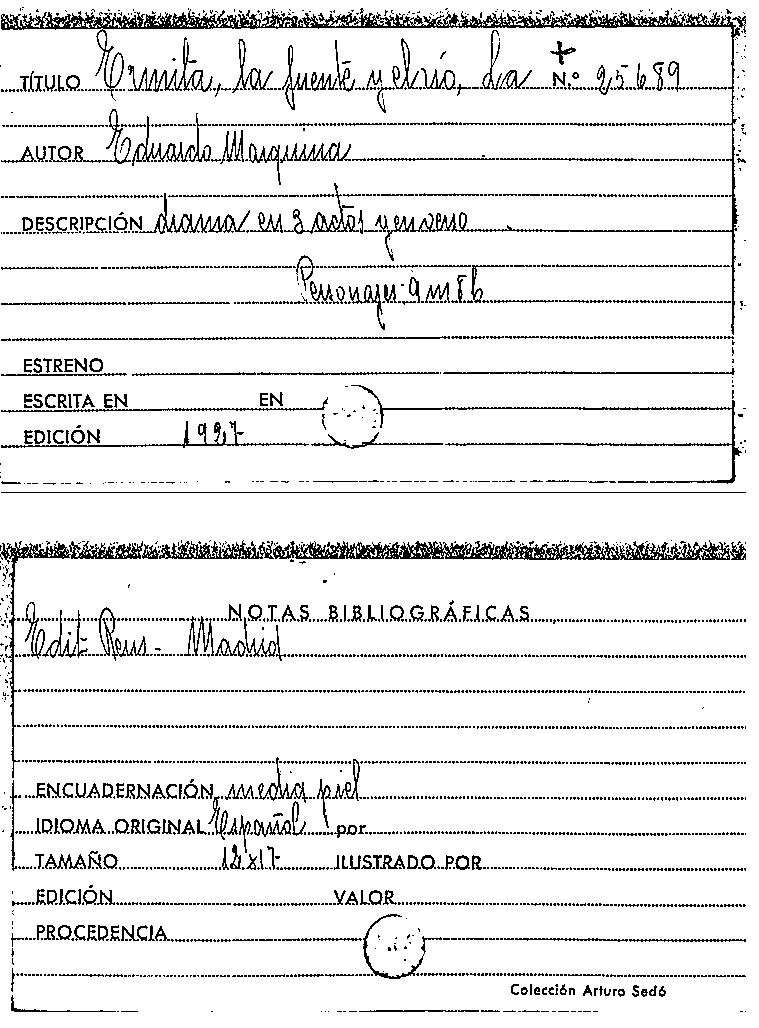 TÍTULO Ermita, la fuente y el río, La + N.º 25689
AUTOR Eduardo Marquina
DESCRIPCIÓN drama en 3 actos y en verso
Personajes: 9 m 8 h
ESTRENO
ESCRITA EN EN
EDICIÓN 1927
NOTAS BIBLIOGRÁFICAS
Edit Reus - Madrid
ENCUADERNACIÓN media piel
IDIOMA ORIGINAL Español por
TAMAÑO 12x17 ILUSTRADO POR
EDICIÓN VALOR
PROCEDENCIA
Colección Arturo Sedó